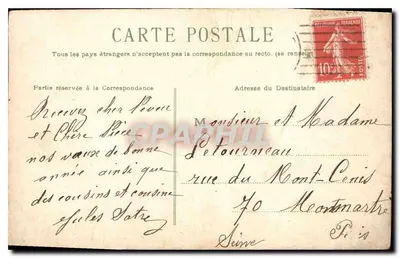 CARTE POSTALE
Tous les pays étrangers n'acceptent pas la correspondance au recto. (se renseigner
Partie réservée à la Correspondance
Adresse du Destinataire
Recevez cher
et Chère Nièce
nos vœux de bonne
année ainsi que
des cousins et cousine
Jules
Monsieur et Madame
Letourneau
rue du Mont-Cenis
70 Montmartre
Paris
Seine
10
CPA